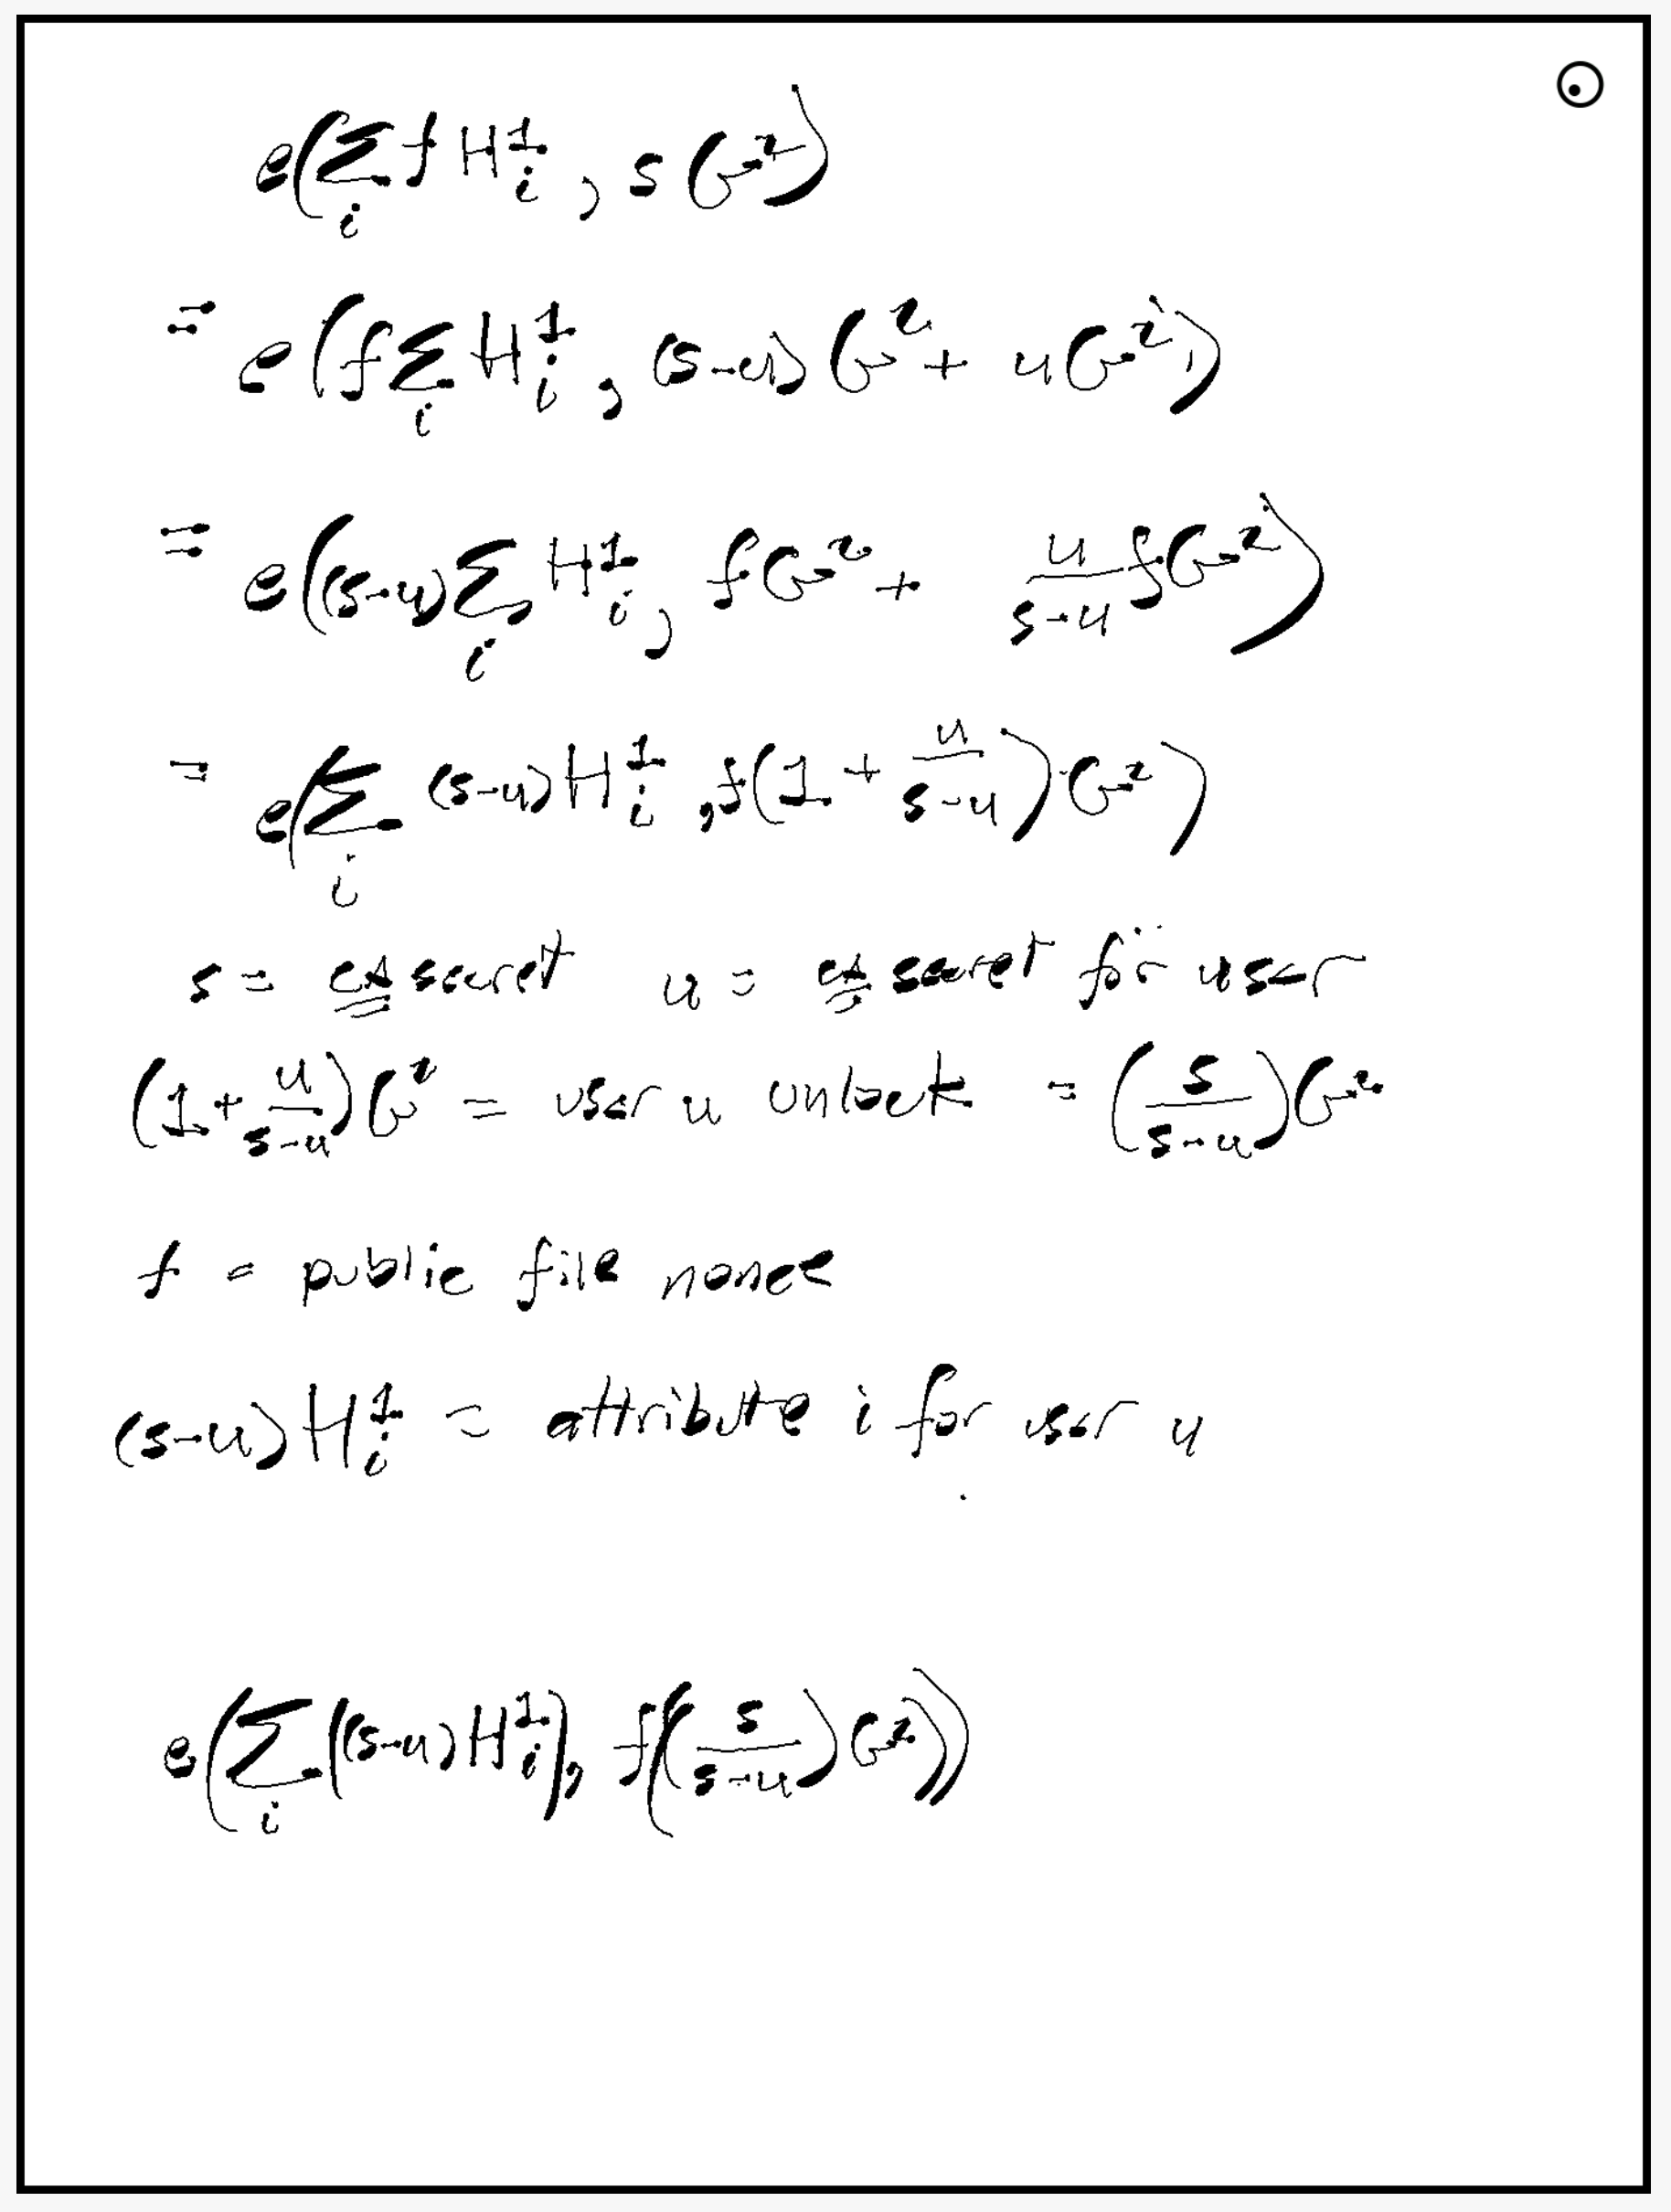 e(∑_i f H^1_i , s G^2)
= e(f ∑_i H^1_i , (s-u) G^2 + u G^2)
= e((s-u) ∑_i H^1_i , f G^2 + u/(s-u) f G^2)
= e(∑_i (s-u) H^1_i , f(1 + u/(s-u)) G^2)
s = CA secret u = CA secret for user
(1 + u/(s-u)) G^2 = user u unlock = (s/(s-u)) G^2
f = public file nonce
(s-u) H^1_i = attribute i for user u
e(∑_i ((s-u) H^1_i), f((s/(s-u)) G^2))